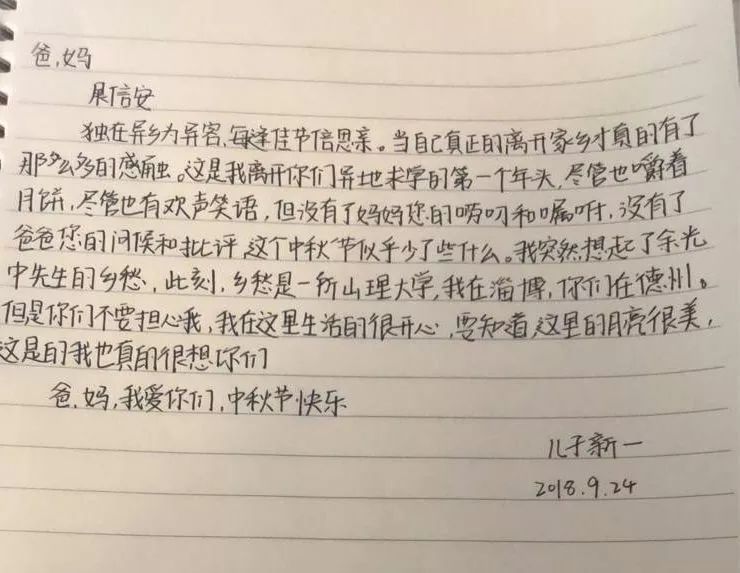 爸,妈
展信安
独在异乡为异客,每逢佳节倍思亲。当自己真正的离开家乡才真的有了
那么多的感触。这是我离开你们异地求学的第一个年头,尽管也嚼着
月饼,尽管也有欢声笑语,但没有了妈妈您的唠叨和嘱咐,没有了
爸爸您的问候和批评,这个中秋节似乎少了些什么。我突然想起了余光
中先生的乡愁,此刻,乡愁是一所山理大学,我在淄博,你们在德州。
但是你们不要担心我,我在这里生活的很开心,要知道,这里的月亮很美,
这是的我也真的很想你们
爸,妈,我爱你们,中秋节快乐
儿子新一
2018.9.24